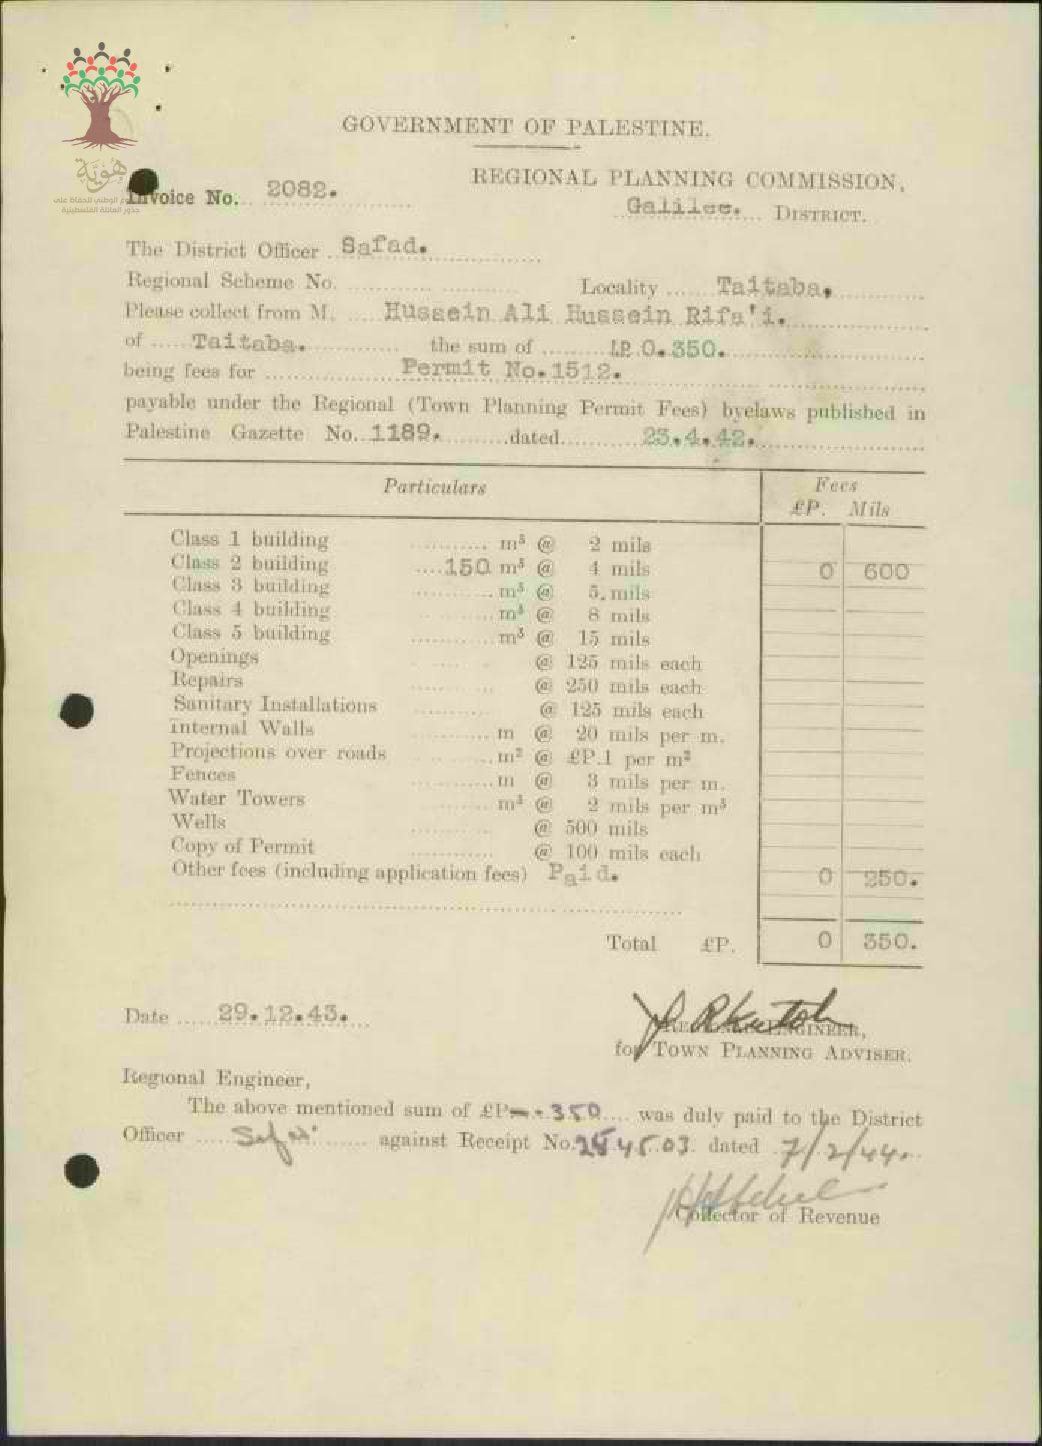 هُويَّة
المشروع الوطني للحفاظ على
جذور العائلة الفلسطينية
GOVERNMENT OF PALESTINE.
REGIONAL PLANNING COMMISSION,
Invoice No. 2082.
Galilee. DISTRICT.
The District Officer Safad.
Regional Scheme No. Locality Taitaba.
Please collect from M. Hussein Ali Hussein Rifa'i.
of Taitaba. the sum of LP 0.350.
being fees for Permit No.1512.
payable under the Regional (Town Planning Permit Fees) byelaws published in
Palestine Gazette No. 1189. dated 23.4.42.
Particulars Fees
£P. Mils
Class 1 building m³ @ 2 mils
Class 2 building 150 m³ @ 4 mils 0 600
Class 3 building m³ @ 5 mils
Class 4 building m³ @ 8 mils
Class 5 building m³ @ 15 mils
Openings @ 125 mils each
Repairs @ 250 mils each
Sanitary Installations @ 125 mils each
Internal Walls m @ 20 mils per m.
Projections over roads m² @ £P.1 per m²
Fences m @ 3 mils per m.
Water Towers m³ @ 2 mils per m³
Wells @ 500 mils
Copy of Permit @ 100 mils each
Other fees (including application fees) Paid. 0 250.
Total £P. 0 350.
Date 29.12.43.
REGIONAL ENGINEER,
for TOWN PLANNING ADVISER.
Regional Engineer,
The above mentioned sum of £P-.350 was duly paid to the District
Officer Safad against Receipt No. dated 7/2/44.
Collector of Revenue